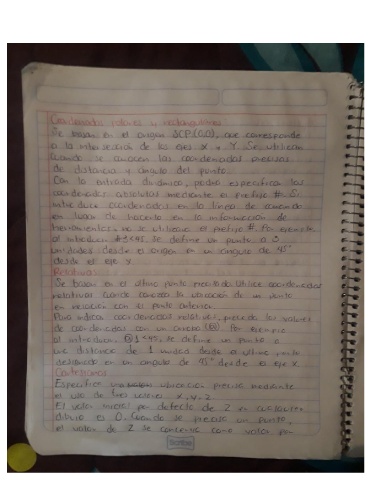 Coordenadas polares y
Se basan en el origen SCP (0,0), que corresponde
a la intersección de los ejes X y Y. Se utilizan
cuando se conocen las coordenadas precisas
de distancia y angulo del punto.
Con la entrada dinámica, podrá especificar las
coordenadas absolutas mediante el prefijo #. Si
introduce coordenadas en la línea de comando
en lugar de hacerlo en la información de
herramientas, no se utiliza el prefijo #. Por ejemplo
al introducir #3<45, se define un punto a 3
unidades desde el origen en un angulo de 45°
desde el eje X.
Relativas
Se basan en el último punto precisado. Utilice coordenadas
relativas cuando conozca la ubicación de un punto
en relación con el punto anterior.
Para indicar coordenadas relativas, preceda los valores
de coordenadas con un arroba (@). Por ejemplo
al introducir @1<45, se define un punto a
una distancia de 1 unidad desde el último punto
designado en un angulo de 45° desde el eje X
Cartesianas
Especifica ubicación precisa mediante
el uso de tres valores X, Y, Z
El valor inicial por defecto de Z en cualquier
dibujo es 0. Cuando se precise un punto,
el valor de Z se conserva como valor por
Scribe